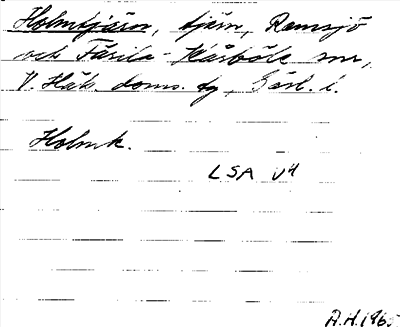 Holmtjärn, tjärn, Ramsjö
och Färila-Kårböle snr,
V. Häls. doms. tg, Gävl. l.
Holmk.
LSA V4
A.H. 1965